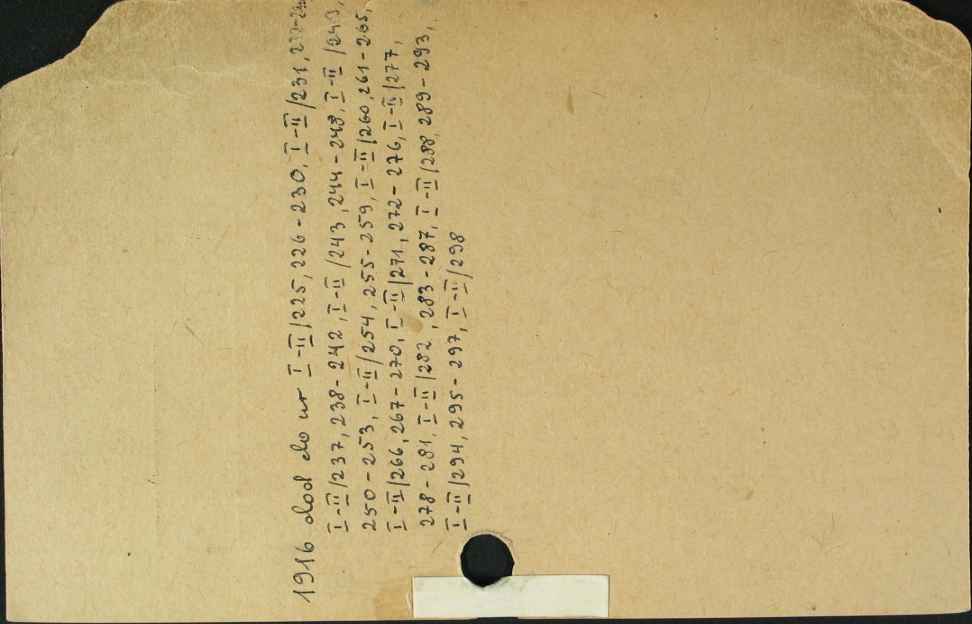 1916 dod do nr I-II/225, 226-230, I-II/231, 232-236
I-II/237, 238-242, I-II/243, 244-248, I-II/249,
250-253, I-II/254, 255-259, I-II/260, 261-265,
I-II/266, 267-270, I-II/271, 272-276, I-II/277,
278-281, I-II/282, 283-287, I-II/288, 289-293,
I-II/294, 295-297, I-II/298